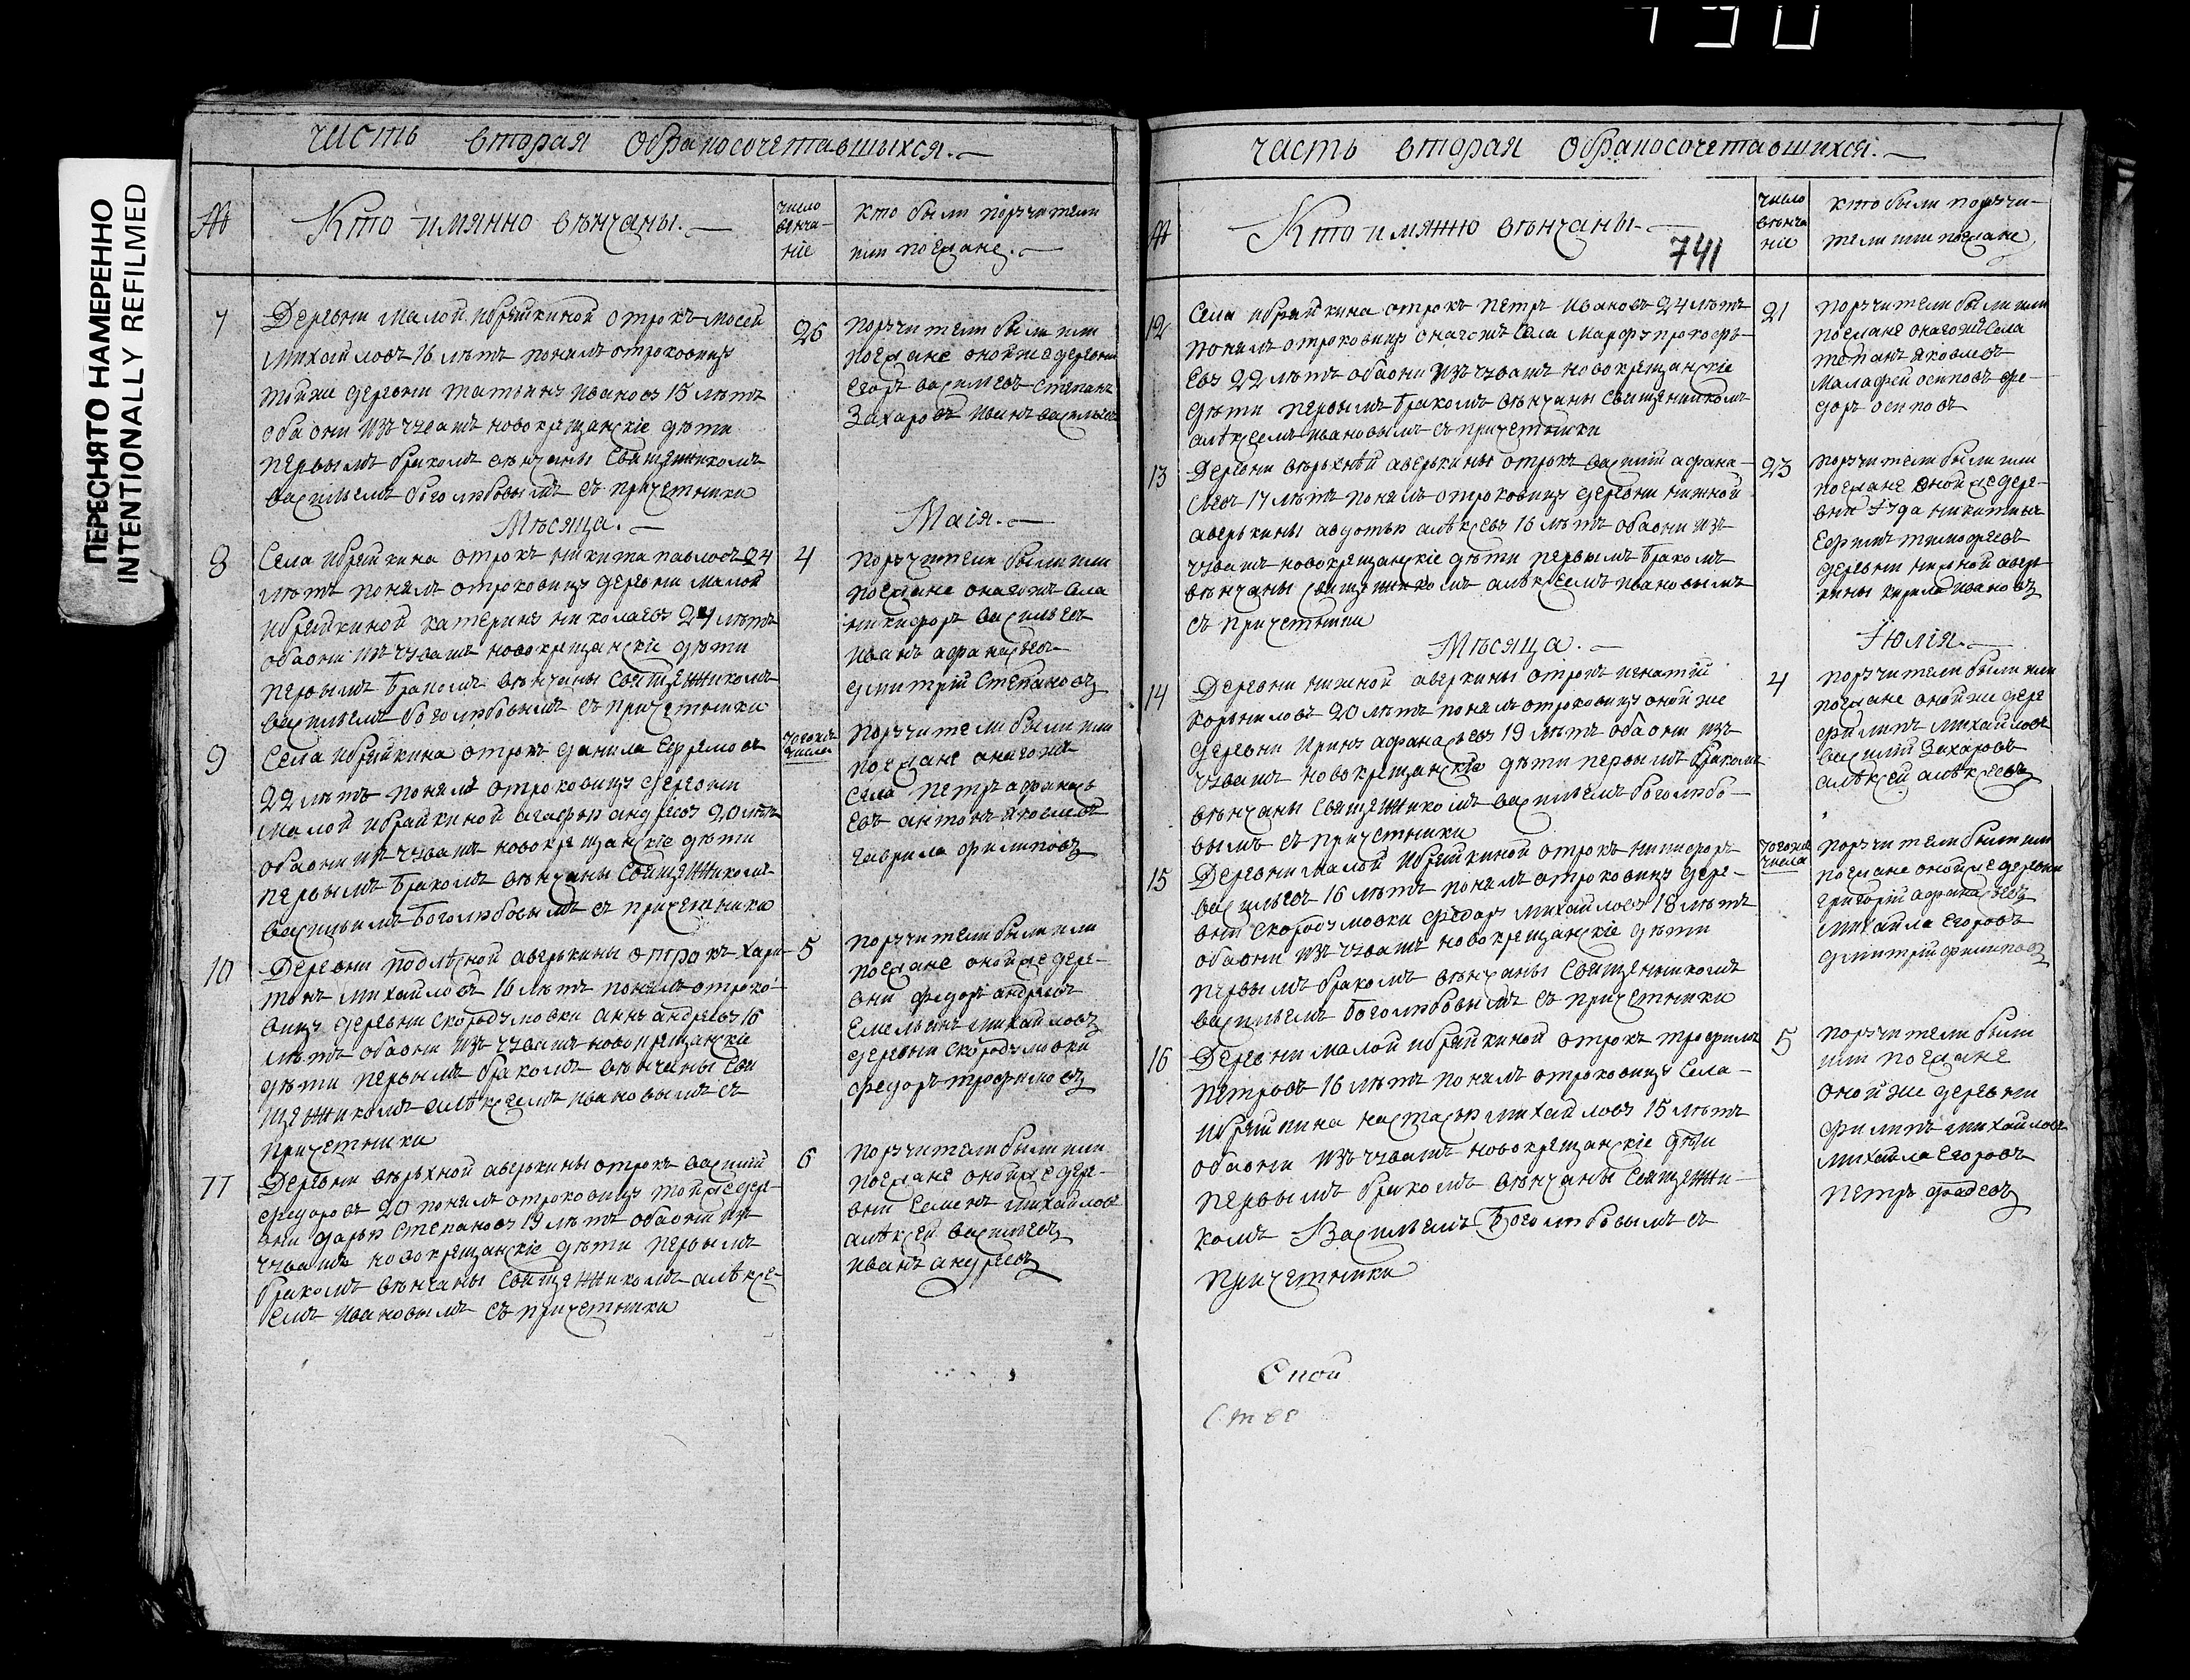 ПЕРЕСНЯТО НАМЕРЕННО
INTENTIONALLY REFILMED
часть вторая обракосочетавшыхся.
№
Кто имянно вѣнчаны.
число
венча-
ніе
кто были поручители
или поезжане.
7
Деревни малой ибряйкиной отрокъ мосей
михайловъ 16 лѣтъ понялъ отроковицу
тойже деревни татьяну иванову 15 лѣтъ
оба они изъ чувашъ новокрещенскіе дѣти
первымъ бракомъ вѣнчаны священникомъ
васильемъ боголюбовымъ съ причетники
26
поручители были или
поезжане онойже деревни
егоръ васильевъ степанъ
захаровъ иванъ васильевъ
Мѣсяца.
Маія.
8
Села ибряйкина отрокъ никита павловъ 24
лѣтъ понялъ отроковицу деревни малой
ибряйкиной катерину николаеву 24 лѣтъ
оба они изъ чувашъ новокрещенскіе дѣти
первымъ бракомъ вѣнчаны священникомъ
васильемъ боголюбовымъ съ причетники
4
поручители были или
поезжане оногожъ села
никифоръ васильевъ
иванъ афанасьевъ
дмитрій степановъ
9
Села ибряйкина отрокъ данила ефремовъ
22 лѣтъ понялъ отроковицу деревни
малой ибряйкиной агафью андрееву 20 лѣтъ
оба они изъ чувашъ новокрещанскіе дѣти
первымъ бракомъ вѣнчаны священникомъ
васильимъ боголюбовымъ съ причетники
тогожъ
числа
поручители были или
поезжане оногожъ
села петръ афанась
евъ антонъ яковлевъ
гаврила филиповъ
10
Деревни подлѣсной аверькины отрокъ хари-
тонъ михайловъ 16 лѣтъ понялъ отроко-
вицу деревни скородумовки анну андрееву 16
лѣтъ оба они изъ чувашъ новокрещанскіе
дѣти первымъ бракомъ вѣнчаны свя
щенникомъ алѣксеемъ ивановымъ съ
причетники
5
поручители были или
поезжане онойже дере-
вни федоръ андреевъ
емельянъ михайловъ
деревни скородумовки
федоръ трофимовъ
11
Деревни вѣрьхной аверькины отрокъ василий
федоровъ 20 понялъ отроковицу тойже дере-
вни дарью степанову 19 лѣтъ оба они изъ
чувашъ новокрещанскіе дѣти первымъ
бракомъ вѣнчаны священникомъ алѣксе-
емъ ивановымъ съ причетники
6
поручители были или
поезжане онойже дере-
вни семенъ михайловъ
алѣксей васильевъ
иванъ андреевъ
часть вторая обракосочетавшихся.
№
Кто имянно вѣнчаны.
741
число
вѣнча
ніе
кто были поручи-
тели или поезжане
12
Села ибряйкина отрокъ петръ ивановъ 24 лѣтъ
понялъ отроковицу оногожъ села марфу прокофь-
еву 22 лѣтъ оба они изъ чувашъ новокрещанскіе
дѣти первымъ бракомъ вѣнчаны священникомъ
алѣксеемъ ивановымъ съ причетники
21
поручители были или
поезжане оногожъ села
степанъ яковлевъ
малафей осиповъ фе-
доръ осиповъ
13
Деревни вѣрьхнѣй аверькины отрокъ василий афана-
сьевъ 17 лѣтъ понялъ отроковицу деревни нижной
аверькины авдотью алѣксеву 16 лѣтъ оба они изъ
чувашъ новокрещанскіе дѣти первымъ бракомъ
вѣнчаны священникомъ алѣксеемъ ивановымъ
съ причетники
23
поручители были или
поезжане оной же дере-
вни іуда никитинъ
ефимъ тимофеевъ
деревни нижной аверь
кины кирила ивановъ
Мѣсяца.
Іюлія.
14
Деревни нижной аверкины отрокъ игнатій
корниловъ 20 лѣтъ понялъ отроковицу онойже
деревни ирину афанасьеву 19 лѣтъ оба они изъ
чувашъ новокрещанскіе дѣти первымъ бракомъ
вѣнчаны священникомъ васильемъ боголюбо-
вымъ съ причетники
4
поручители были или
поезжане онойже дере
филипъ михайловъ
василий захаровъ
алѣксей алѣксеевъ
15
Деревни малой ибряйкиной отрокъ никифоръ
васильевъ 16 лѣтъ понялъ отроковицу дере-
вни скородумовки федору михайлову 18 лѣтъ
оба они изъ чувашъ новокрещанскіе дѣти
первымъ бракомъ вѣнчаны священникомъ
васильемъ боголюбовымъ съ причетники
тогожъ
числа
поручители были или
поезжане онойже деревни
григорій афанасьевъ
михайла егоровъ
дмитрій филиповъ
16
Деревни малой ибряйкиной отрокъ трофимъ
петровъ 16 лѣтъ понялъ отроковицу села
ибряйкина настасью михайлову 15 лѣтъ
оба они изъ чувашъ новокрещанскіе дѣти
первымъ бракомъ вѣнчаны священни-
комъ Васильемъ Боголюбовымъ съ
причетники
5
поручители были
или поезжане
онойже деревни
филипъ михайловъ
михайла егоровъ
петръ фадеевъ